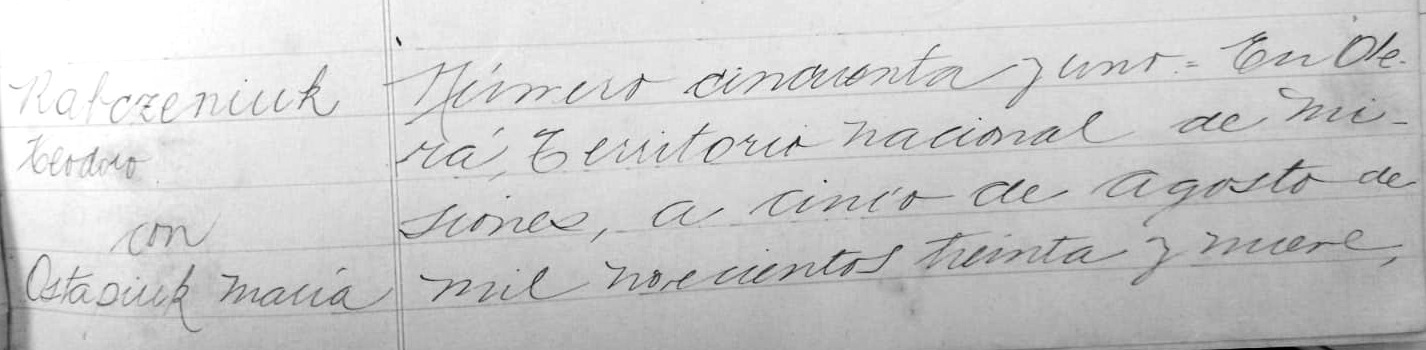 Ratczeniuk
Teodoro
con
Ostasiuk María
Número cincuenta y uno = En Obe-
rá, Territorio nacional de Mi-
siones, a cinco de agosto de
mil novecientos treinta y nueve,